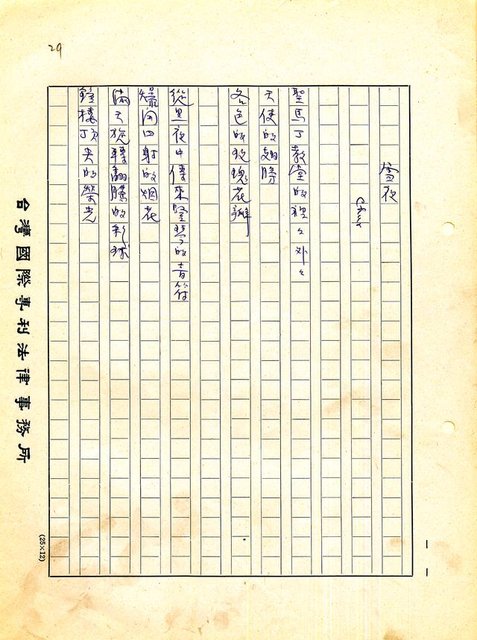 29
雪夜
聖馬丁教堂的裡裡外外
天使的翅膀
各色的玫瑰花瓣
從黑夜中傳來豎琴的音符
爆向四射的烟花
滿天旋轉翻騰的彩球
鐘樓頂尖的榮光
台灣國際專利法律事務所
(25×12)